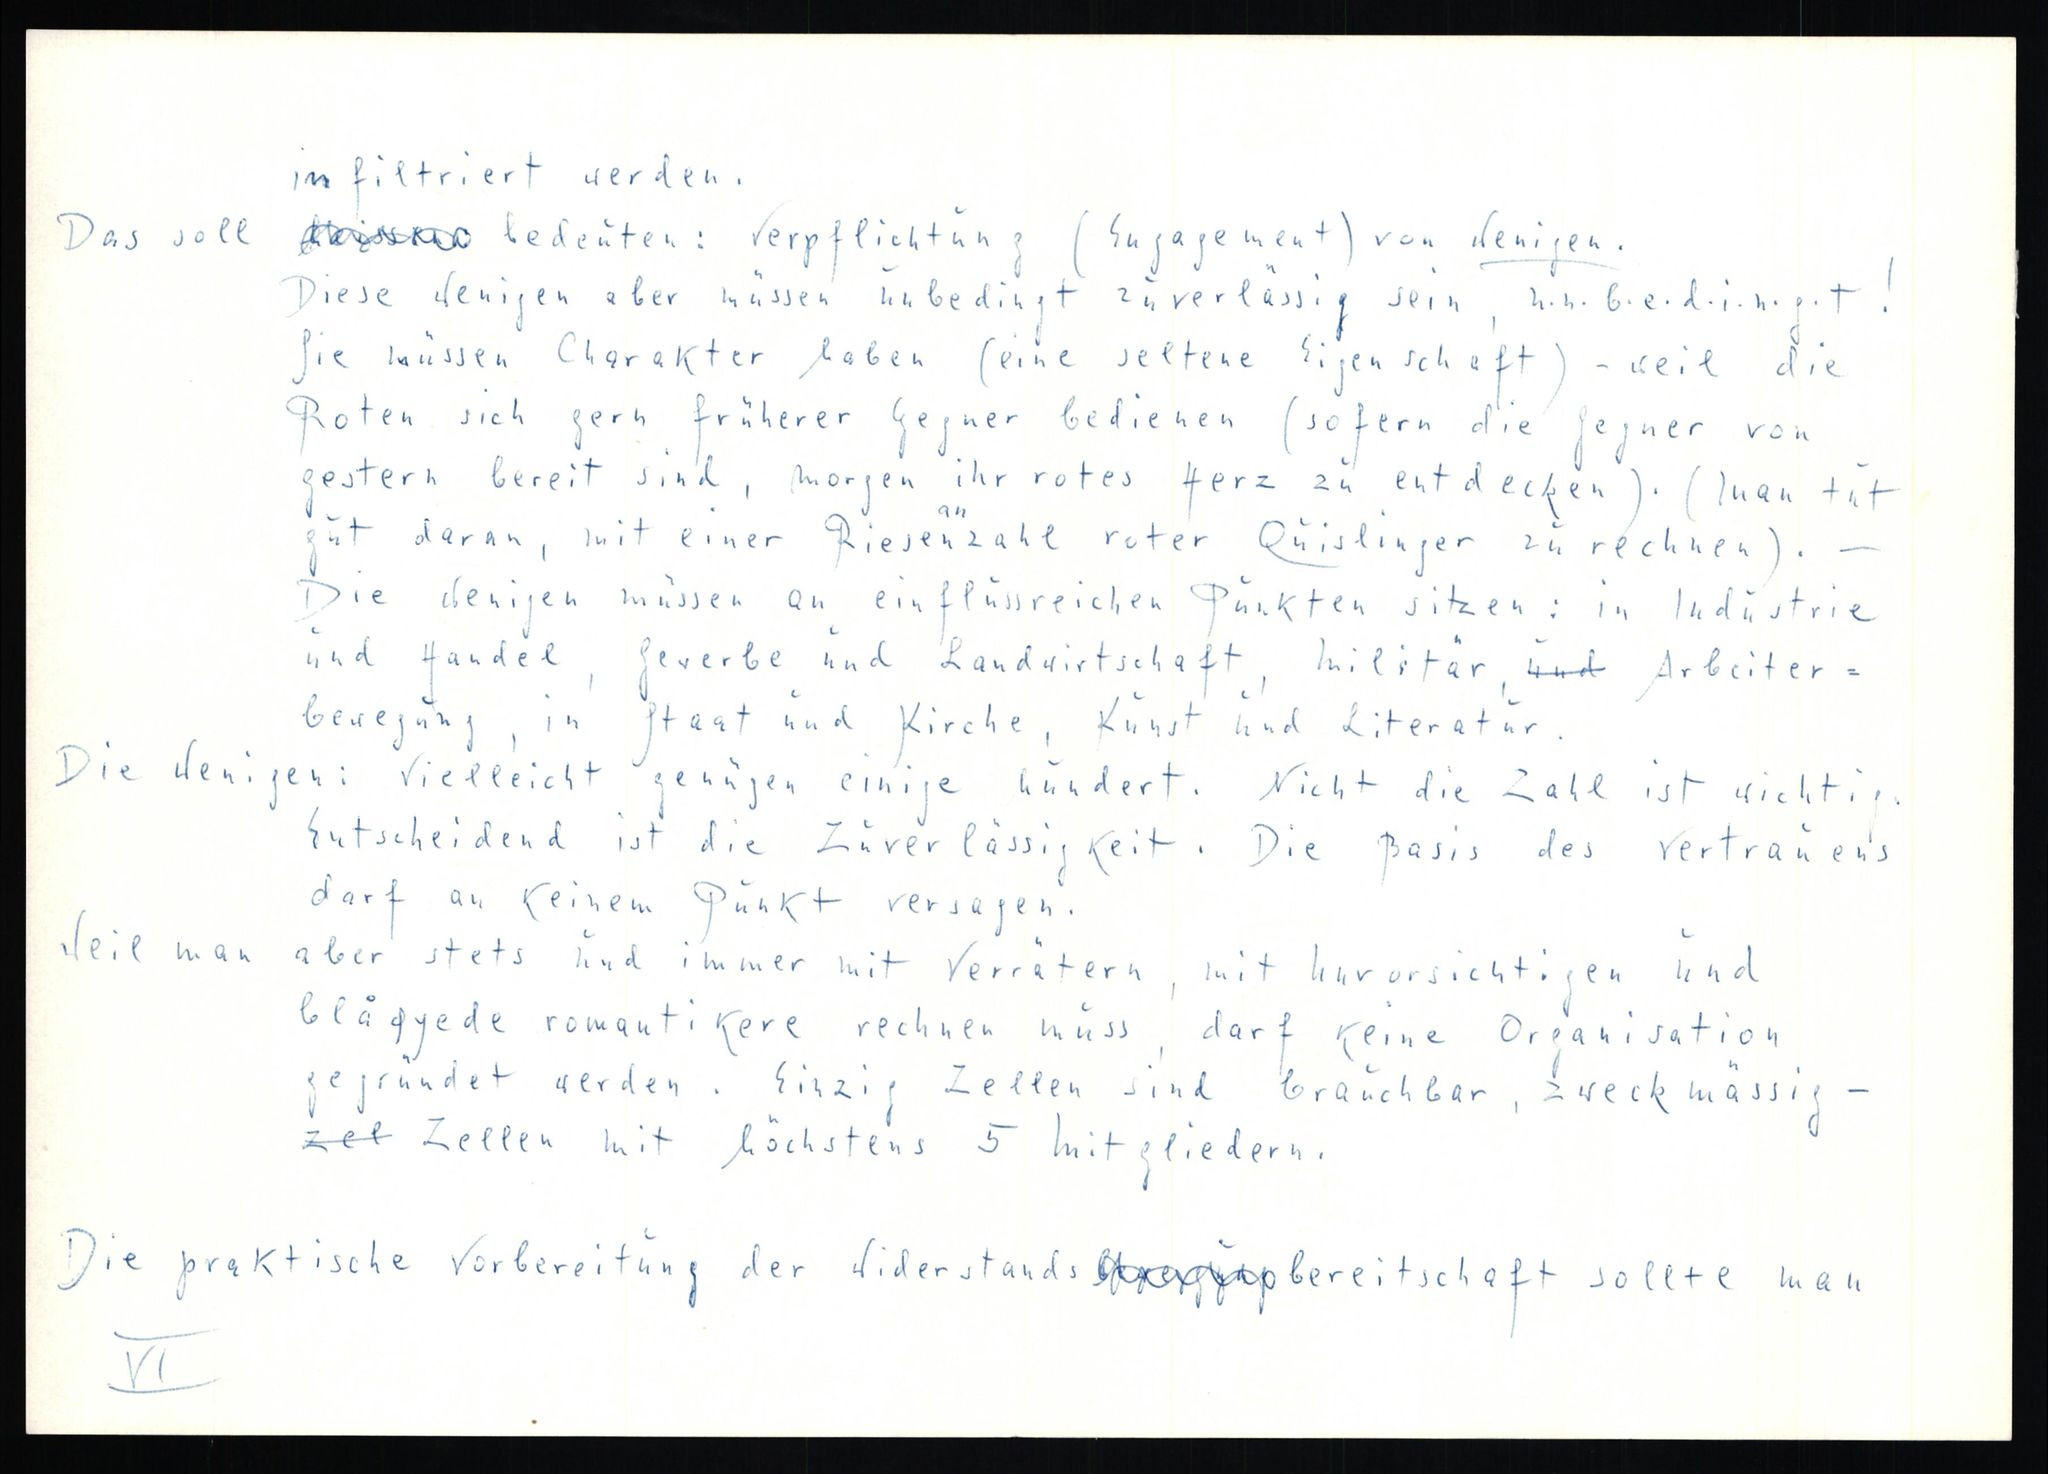 infiltriert werden.
Das soll bedeuten: Verpflichtung (Engagement) von Wenigen.
Diese Wenigen aber müssen unbedingt zuverlässig sein, u.n.b.e.d.i.n.g.t!
Sie müssen Charakter haben (eine seltene Eigenschaft) - weil die
Roten sich gern früherer Gegner bedienen (sofern die Gegner von
gestern bereit sind, morgen ihr rotes Herz zu entdecken). (Man tut
gut daran, mit einer Riesenanzahl roter Quislinger zu rechnen). —
Die Wenigen müssen an einflussreichen Punkten sitzen: in Industrie
und Handel, Gewerbe und Landwirtschaft, Militär, und Arbeiter=
bewegung, in Staat und Kirche, Kunst und Literatur.
Die Wenigen: Vielleicht genügen einige hundert. Nicht die Zahl ist wichtig.
Entscheidend ist die Zuverlässigkeit. Die Basis des Vertrauens
darf an keinem Punkt versagen.
Weil man aber stets und immer mit Verrätern, mit Unvorsichtigen und
blåøyede romantikere rechnen muss, darf keine Organisation
gegründet werden. Einzig Zellen sind brauchbar, zweckmässig -
zel Zellen mit höchstens 5 Mitgliedern.
Die praktische Vorbereitung der Widerstandsbereitschaft sollte man
VI